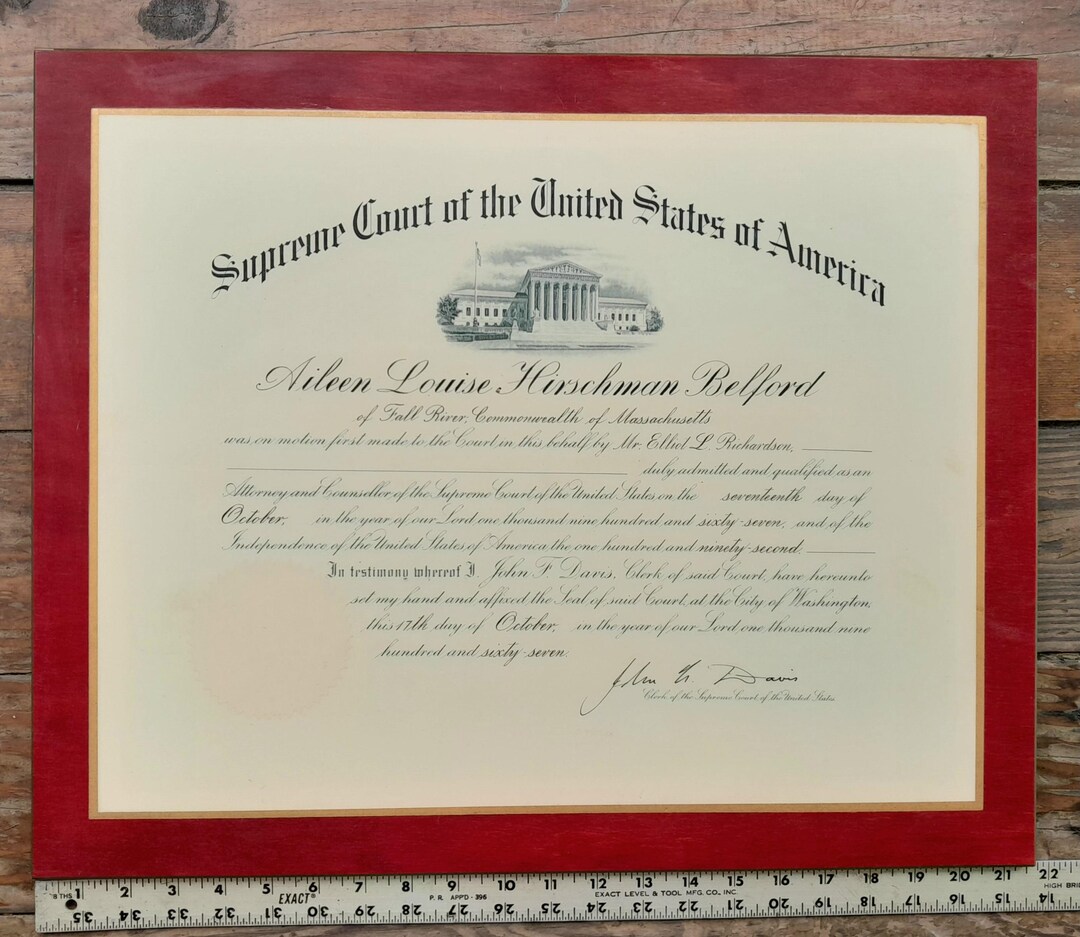 Supreme Court of the United States of America
Aileen Louise Hirschman Belford
of Fall River, Commonwealth of Massachusetts
was, on motion first made to the Court in this behalf by Mr. Elliot L. Richardson,
duly admitted and qualified as an
Attorney and Counsellor of the Supreme Court of the United States on the seventeenth day of
October, in the year of our Lord one thousand nine hundred and sixty-seven, and of the
Independence of the United States of America the one hundred and ninety-second.
In testimony whereof I, John F. Davis, Clerk of said Court, have hereunto
set my hand and affixed the Seal of said Court, at the City of Washington,
this 17th day of October, in the year of our Lord one thousand nine
hundred and sixty-seven.
John F. Davis
Clerk of the Supreme Court of the United States
8THS 1 2 3 4 5 EXACT 6 7 8 9 P.R. APP'D - 396 10 11 12 EXACT LEVEL & TOOL MFG. CO., INC. 13 14 15 16 17 18 19 20 21 22 HIGH BRI
35 34 33 32 31 30 29 28 27 26 25 24 23 22 21 20 19 18 17 16 15 14